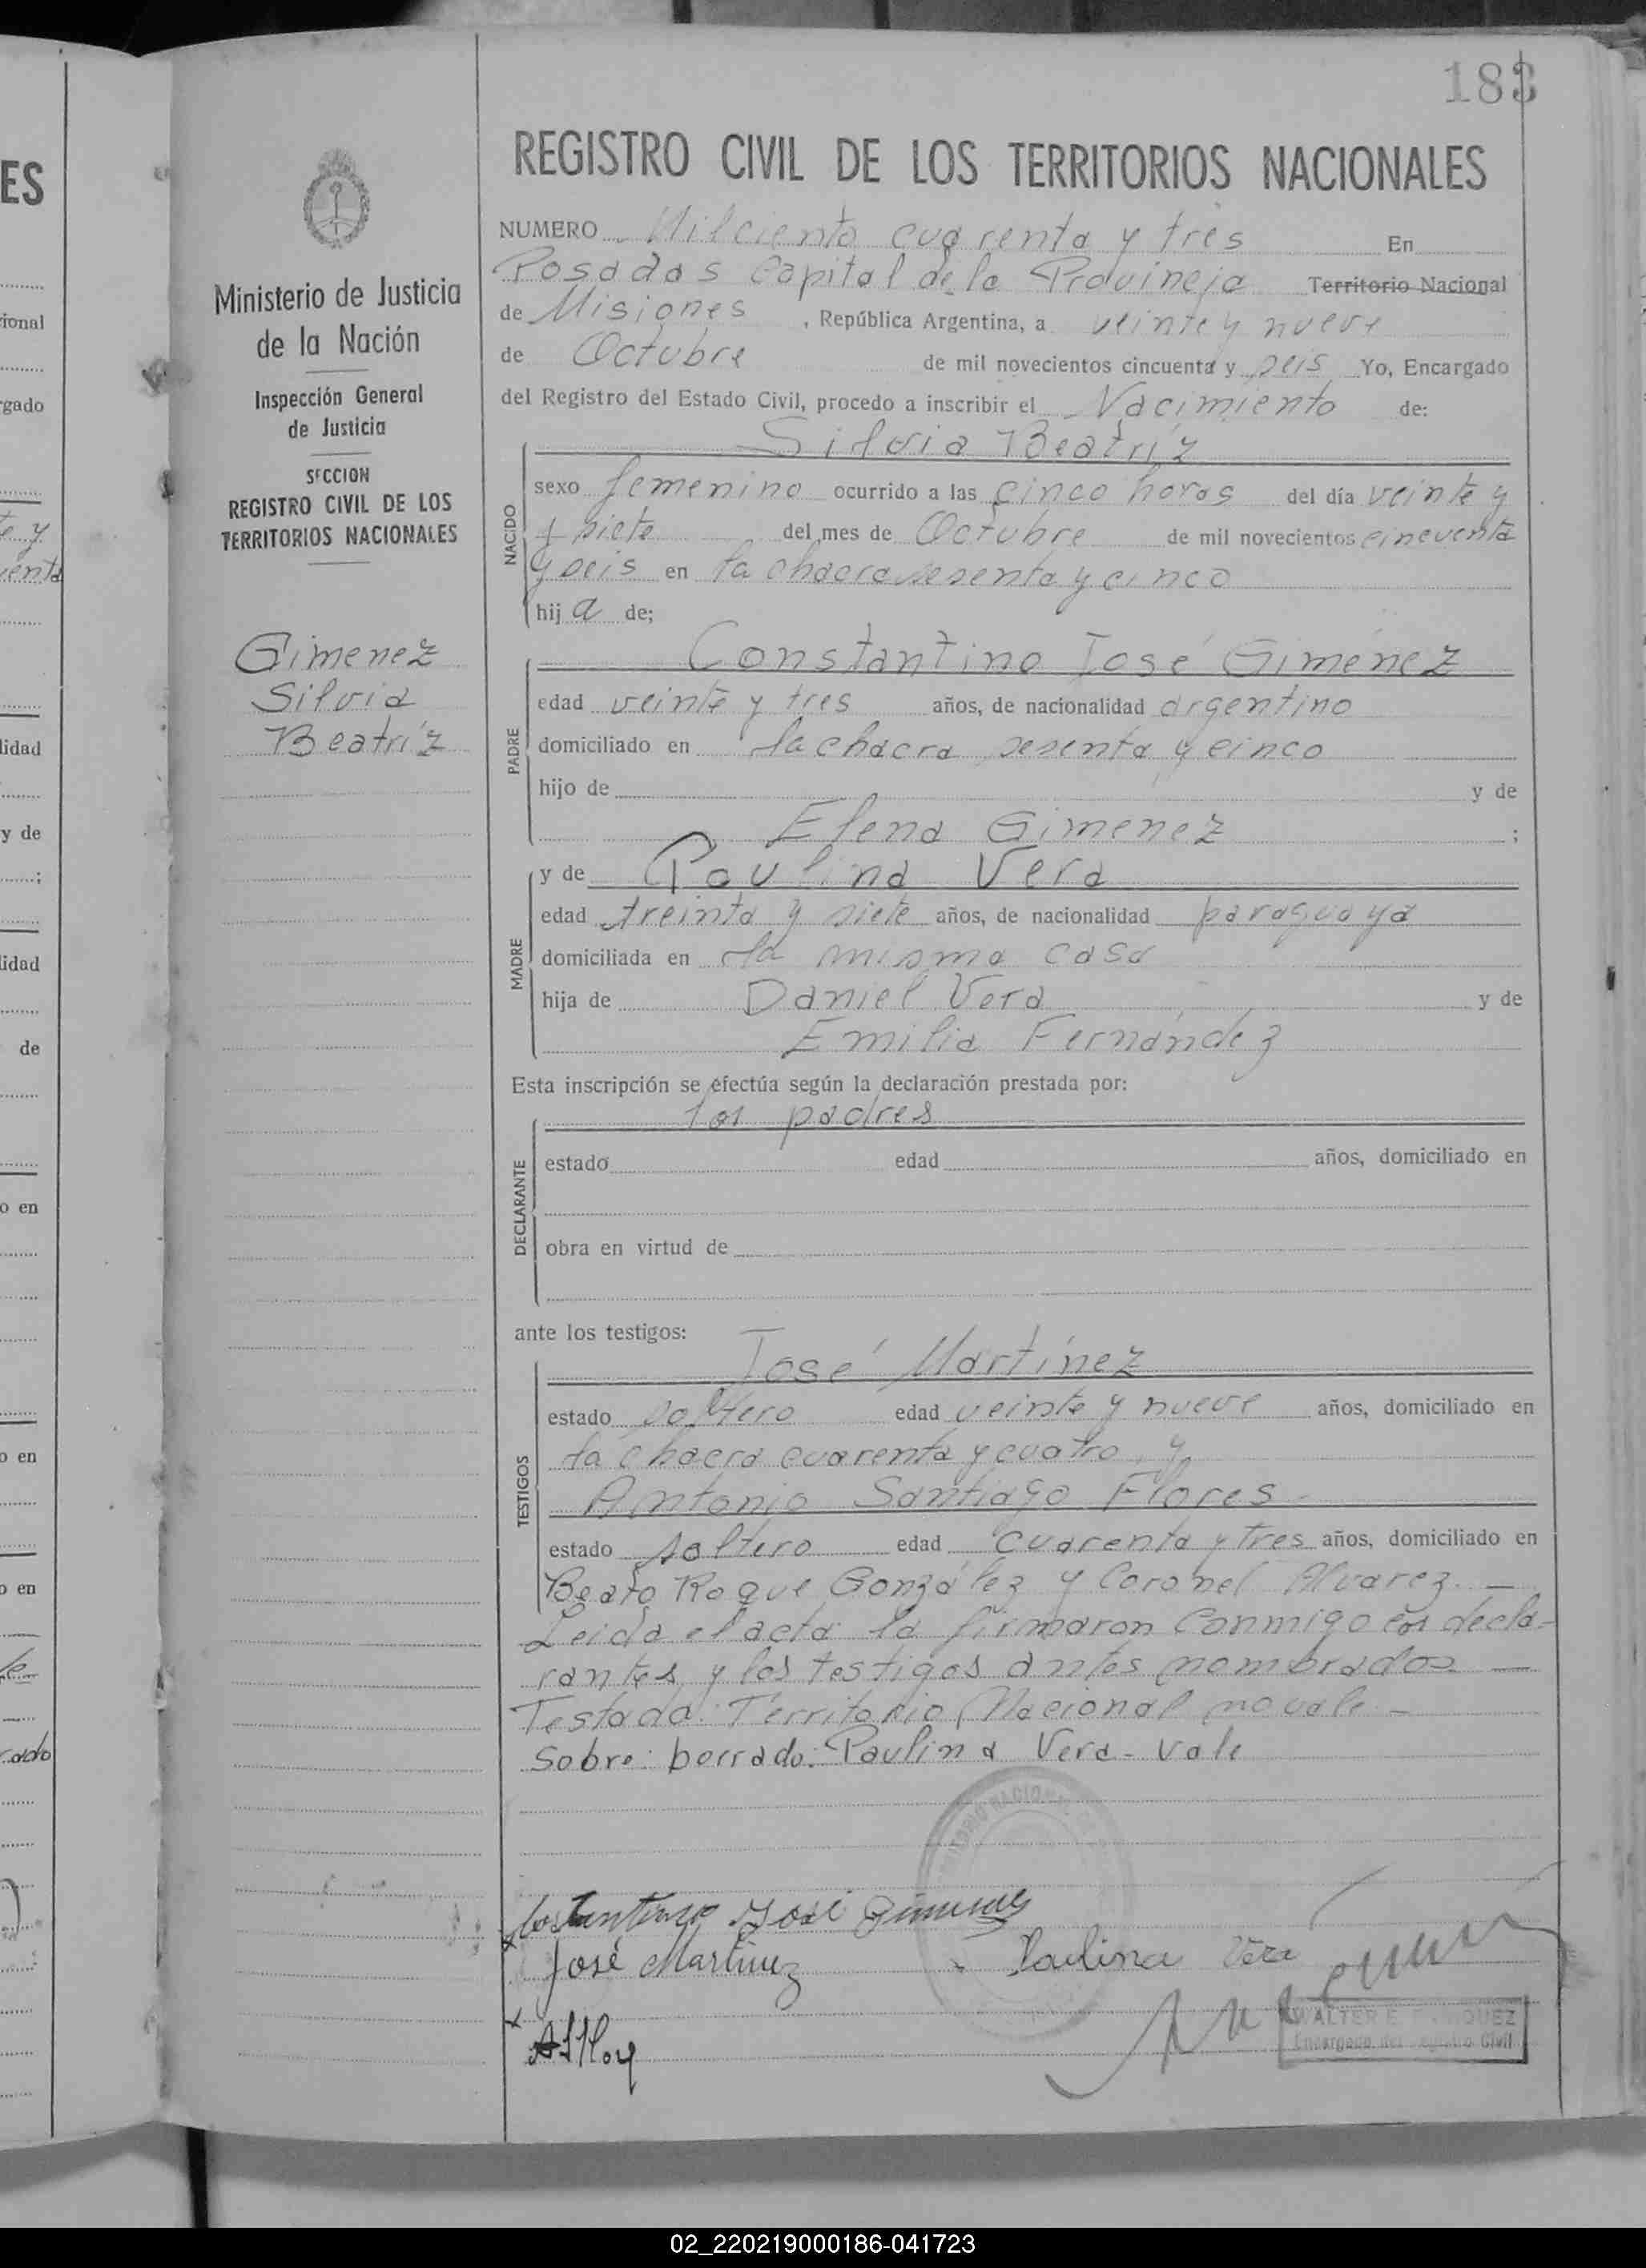 183
REGISTRO CIVIL DE LOS TERRITORIOS NACIONALES
Ministerio de Justicia
de la Nación
Inspección General
de Justicia
SECCION
REGISTRO CIVIL DE LOS
TERRITORIOS NACIONALES
Gimenez
Silvia
Beatríz
NUMERO Milciento cuarenta y tres En
Posadas Capital de la Provincia Territorio Nacional
de Misiones, República Argentina, a veinte y nueve
de Octubre de mil novecientos cincuenta y seis Yo, Encargado
del Registro del Estado Civil, procedo a inscribir el Nacimiento de:
Silvia Beatríz
NACIDO
sexo femenino ocurrido a las cinco horas del día veinte y
y siete del mes de Octubre de mil novecientos cincuenta
y seis en la chacra sesenta y cinco
hij a de;
PADRE
Constantino José Giménez
edad veinte y tres años, de nacionalidad argentino
domiciliado en la chacra sesenta y cinco
hijo de y de
Elena Gimenez ;
MADRE
y de Paulina Vera
edad treinta y siete años, de nacionalidad paraguaya
domiciliada en la misma casa
hija de Daniel Vera y de
Emilia Fernández
Esta inscripción se efectúa según la declaración prestada por:
los padres
DECLARANTE
estado edad años, domiciliado en
obra en virtud de
ante los testigos:
José Martínez
TESTIGOS
estado soltero edad veinte y nueve años, domiciliado en
la chacra cuarenta y cuatro, y
Antonio Santiago Flores
estado soltero edad cuarenta y tres años, domiciliado en
Beato Roque González y Coronel Alvarez. —
Leida el acta la firmaron conmigo los decla-
rantes y los testigos antes nombrados —
Testado: Territorio Nacional no vale —
Sobre: borrado: Paulina Vera - Vale
José Martinez
Paulina Vera
WALTER E.
Encargado del Registro Civil
ES
ional
rgado
lidad
y de
lidad
de
o en
o en
o en
02_220219000186-041723